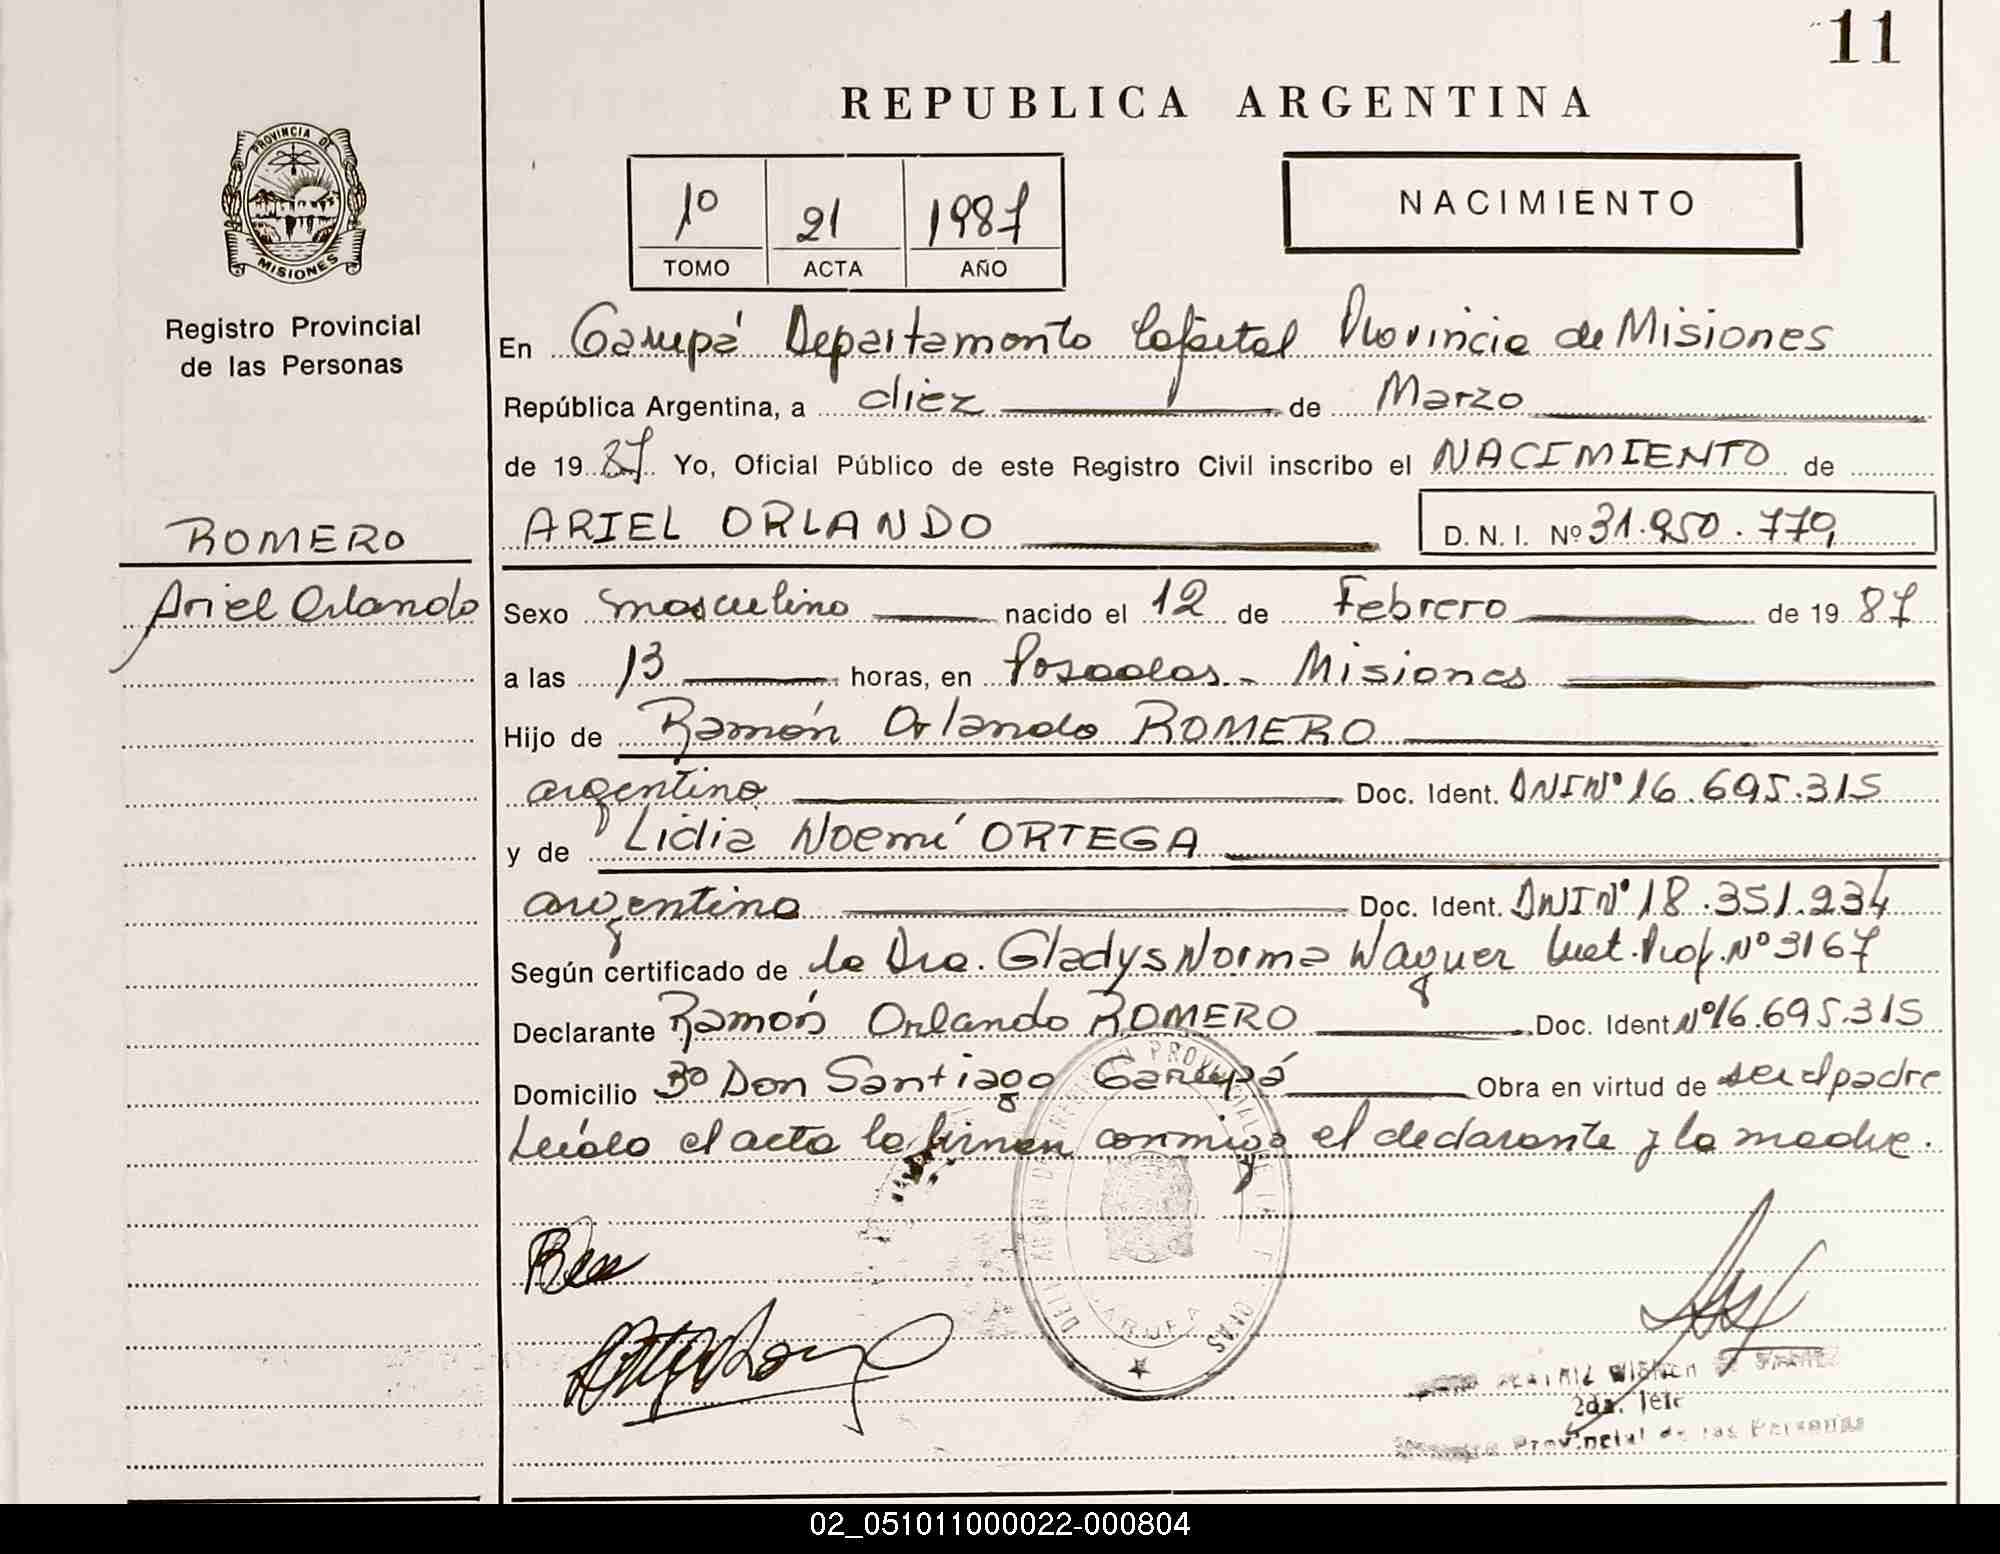 11
REPUBLICA ARGENTINA
PROVINCIA DE
MISIONES
Registro Provincial
de las Personas
1º 21 1987
TOMO ACTA AÑO
NACIMIENTO
En Garupá Departamento Capital Provincia de Misiones
República Argentina, a diez de Marzo
de 1987 Yo, Oficial Público de este Registro Civil inscribo el NACIMIENTO de
ROMERO
Ariel Orlando
ARIEL ORLANDO D. N. I. Nº 31.950.779
Sexo masculino nacido el 12 de Febrero de 1987
a las 13 horas, en Posadas - Misiones
Hijo de Ramón Orlando ROMERO
argentino Doc. Ident. DNI Nº 16.695.315
y de Lidia Noemí ORTEGA
argentina Doc. Ident. DNI Nº 18.351.234
Según certificado de la Dra. Gladys Norma Waguer Mat. Prof. Nº 3167
Declarante Ramón Orlando ROMERO Doc. Ident Nº 16.695.315
Domicilio Bº Don Santiago Garupá Obra en virtud de ser el padre
Leído el acta la firman conmigo el declarante y la madre.
2da. Jefe
Provincial de las Personas
02_051011000022-000804